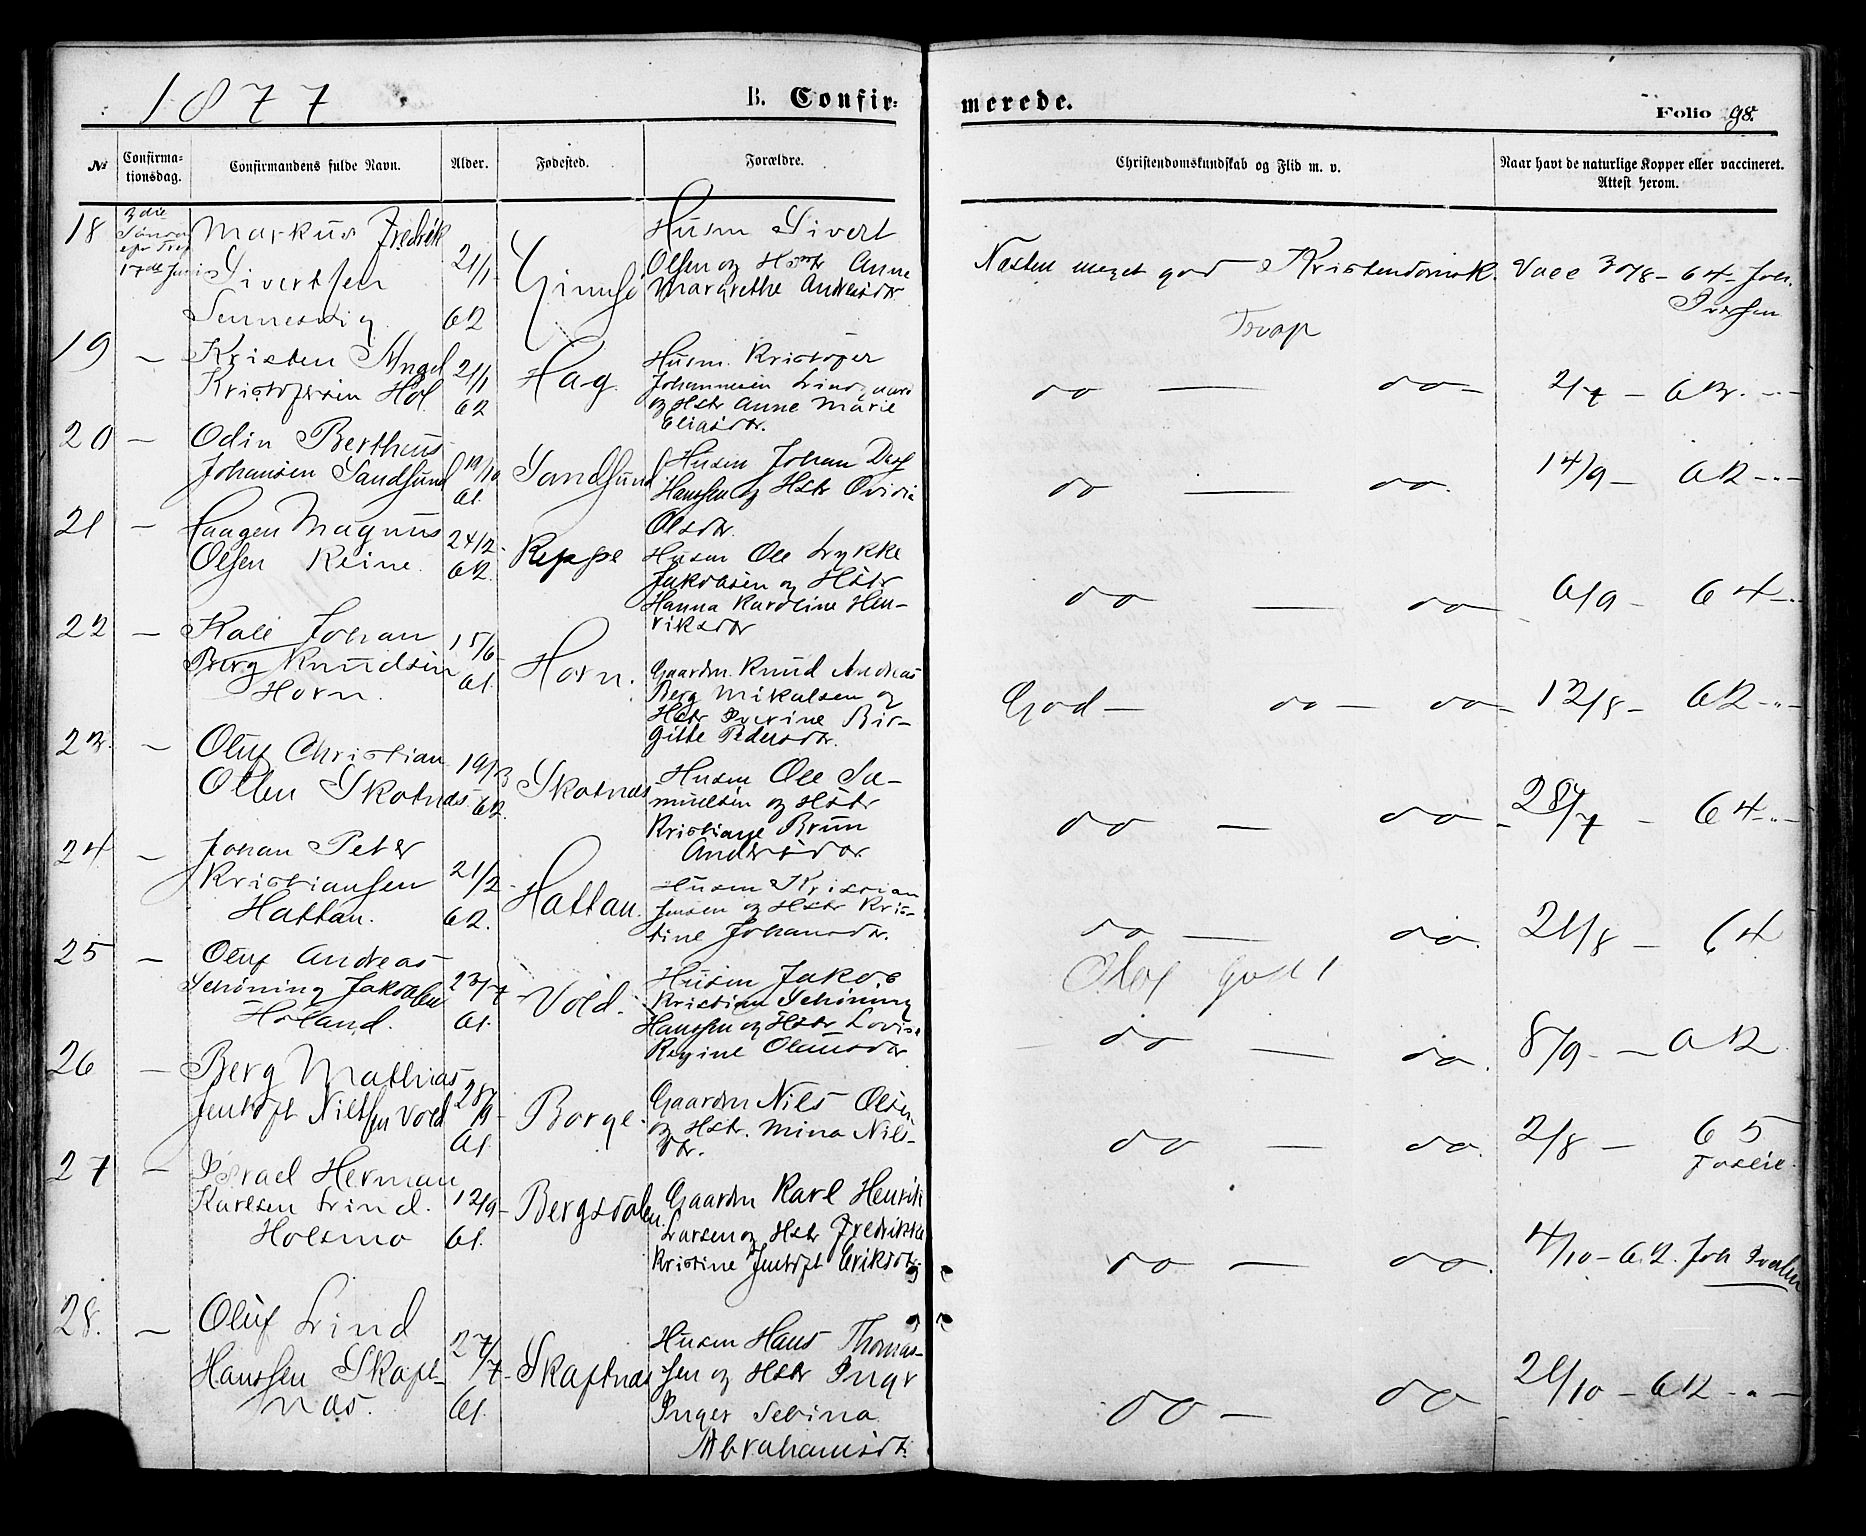 1877
B. Confir-
merede.
Folio 98.
No
Confirma-
tionsdag.
Confirmandens fulde Navn.
Alder.
Fødested.
Forældre.
Christendomskundskab og Flid m. v.
Naar havt de naturlige Kopper eller vaccineret.
Attest herom.
18
3die
Markus Fredrik
Sivertsen
Sennesvig
21/1
62
Gimsø
Husm Sivert
Olsen og Hstr Anne
Margrethe Andersdtr
Næsten meget god Kristendomsk.
Vacc 30/8 - 64 Joh.
Iversen
19 -
Kristen Angel
Kristofersen Hol.
21/1
62
Hag
Husm. Kristofer
Johannesen Lindgaard
og Hstr Anne Marie
Eliasdtr.
do - do -
2/7 - 63. -"-
20 -
Odin Bertheus
Johansen Sandsund
19/10
61.
Sandsund
Husm Johan
Hanssen og Hstr
Olsdtr.
do - do.
14/9 - 62 -"-
21 -
Haagen Magnus
Olsen Reine.
24/2
62.
Reppe
Husm Ole Lykke
Jakobsen og Hstr
Hanna Karoline Hen-
riksdtr
do - do -
6/9 - 64 -"-
22 -
Kale Johan
Berg Knudsen
Horn.
15/6
61.
Horn.
Gaardm. Knud Andreas
Berg Mikalsen og
Hstr Iverine Bir-
gitte Pedersdtr.
God - do - do -
12/8 - 62 -"-
23. -
Oluf Christian
Olsen Skotnæs
19/3
62.
Skotnæs
Husm Ole Sa-
muelsen og Hstr
Kristiane Brun
Andersdtr.
do - do -
28/7 - 64 -"-
24 -
Johan Peter
Kristiansen
Hattan.
21/2
62.
Hattan.
Husm Kristian
Jensen og Hstr Kris-
tine Johansdtr.
do - do.
21/8 - 64
25 -
Oluf Andreas
Schöning Jakobsen
Holand.
23/7
61.
Vold.
Husm Jakob
Kristian Schöning
Hanssen og Hstr Lovise
Regine Olausdtr
do - do.
8/9 - 62
26 -
Berg Mathias
Jentoft Nilssen Vold
28/9
61
Borge.
Gaardm Nils Olsen
og Hstr. Mina Nils-
dtr.
do - do.
2/8 - 65
27 -
Israel Herman
Karlsen Lind.
Holsmo
12/9 -
61.
Bergsdalen.
Gaardm Karl Henrik
Larsen og Hstr Fredrikke
Kristine Jentoft Eriksdtr
do - do.
4/10 - 62. Joh Iversen
28. -
Oluf Lind
Hanssen Skaft-
næs.
27/7 -
61.
Skaftnæs
Husm Hans Thomas-
sen og Hstr Inger
Inger Sebina
Abrahamsdtr.
do - do -
21/10 - 62 -"-